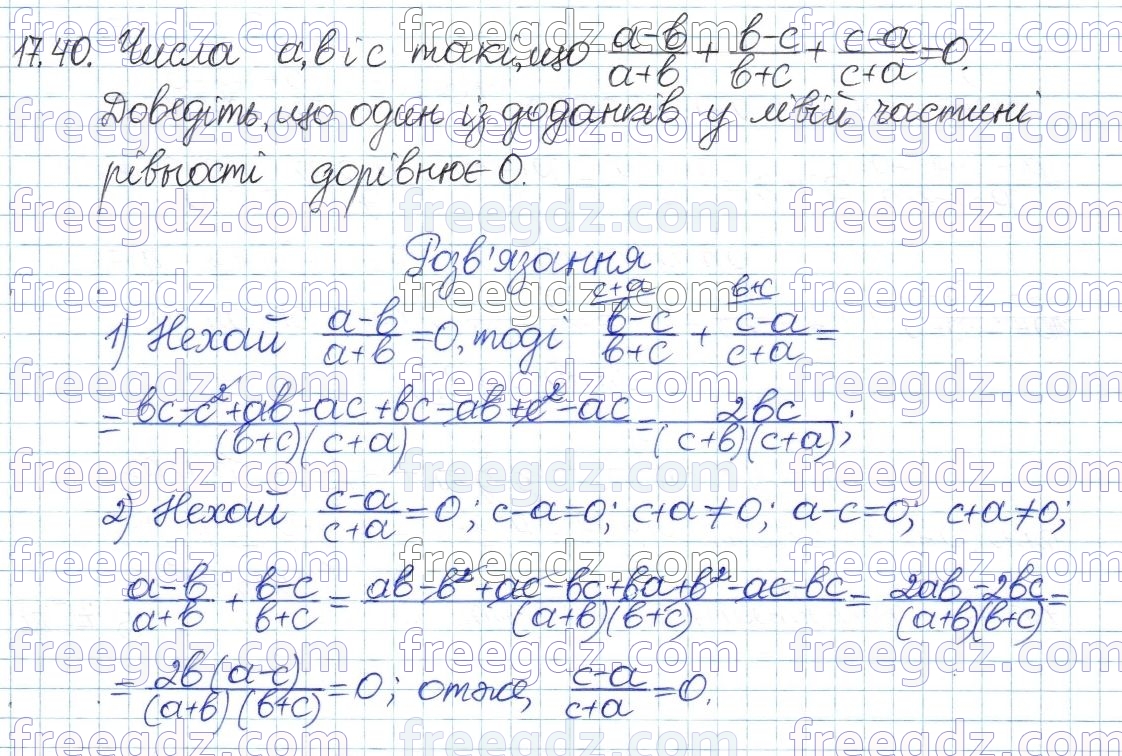 17.40. Числа a, b і c такі, що (a-b)/(a+b) + (b-c)/(b+c) + (c-a)/(c+a) = 0.
Доведіть, що один із доданків у лівій частині
рівності дорівнює 0.
Розв'язання
c+a b+c
1) Нехай (a-b)/(a+b) = 0, тоді (b-c)/(b+c) + (c-a)/(c+a) =
= (bc-c²+ab-ac+bc-ab+c²-ac)/((b+c)(c+a)) = 2bc/((c+b)(c+a));
2) Нехай (c-a)/(c+a) = 0; c-a=0; c+a≠0; a-c=0; c+a≠0;
(a-b)/(a+b) + (b-c)/(b+c) = (ab-b²+ac-bc+ba+b²-ac-bc)/((a+b)(b+c)) = (2ab-2bc)/((a+b)(b+c)) =
= 2b(a-c)/((a+b)(b+c)) = 0; отже, (c-a)/(c+a) = 0.
freegdz.com freegdz.com freegdz.com